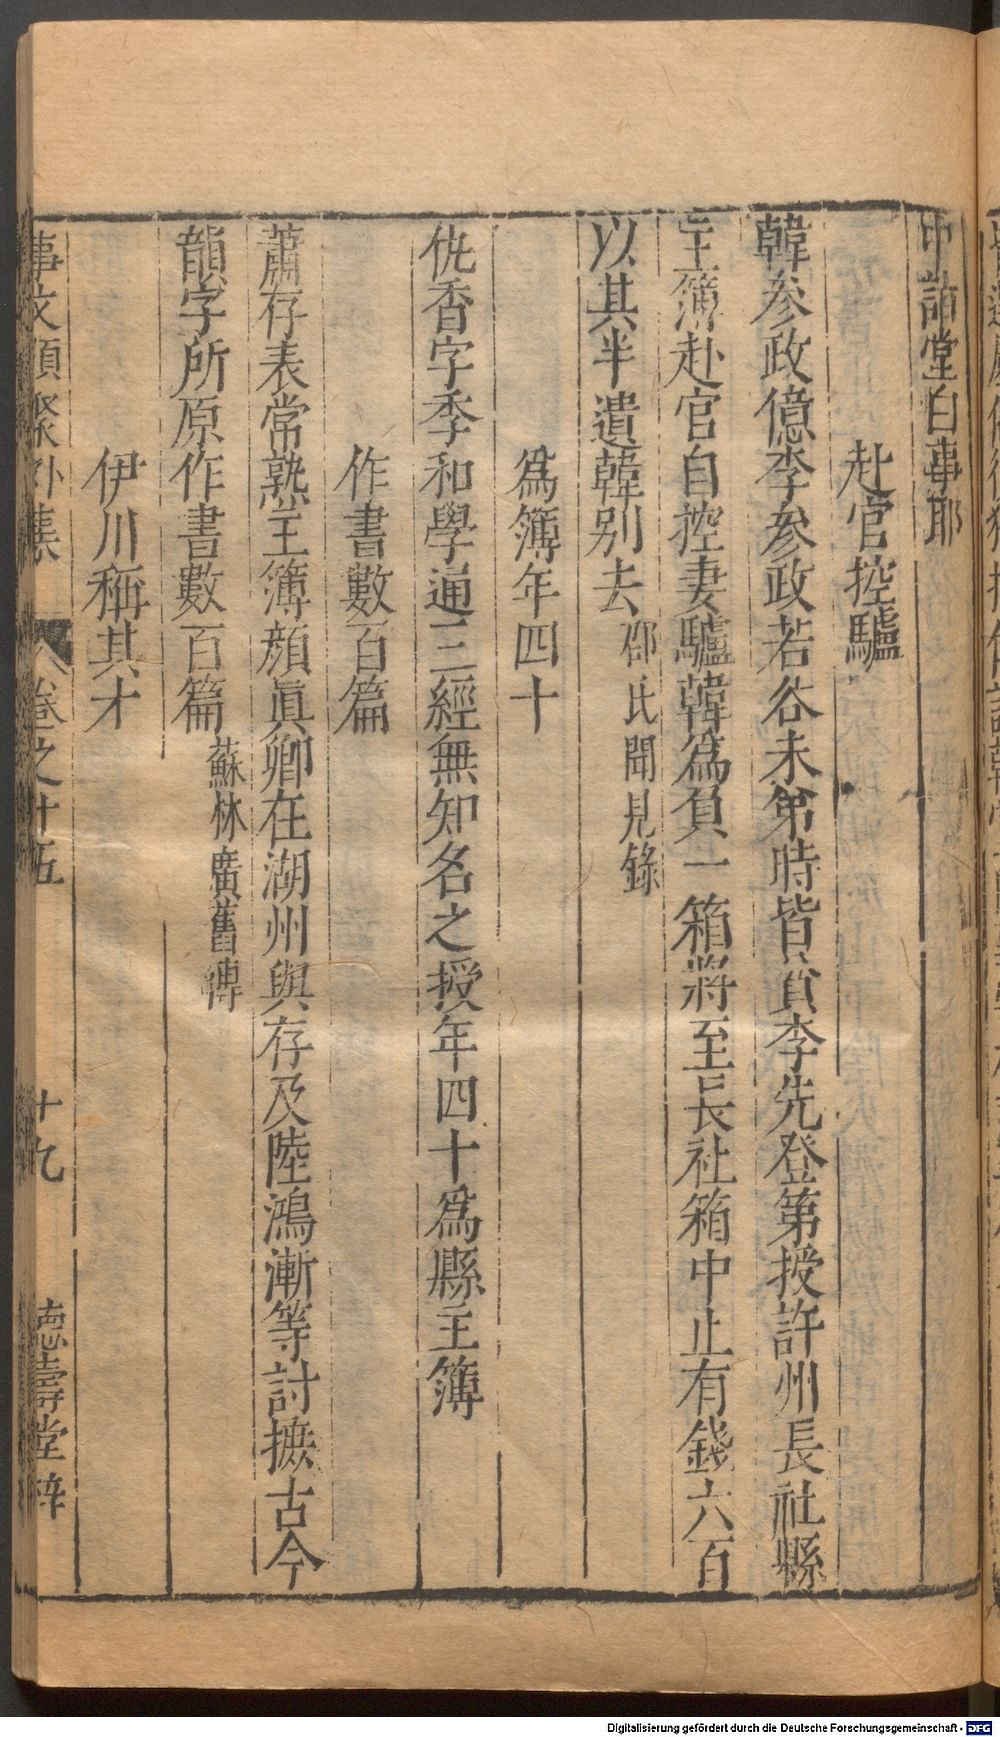 中詣堂白事耶
赴官控驢
韓參政億李參政若谷未第時皆貧李先登第授許州長社縣
主簿赴官自控妻驢韓為負一箱將至長社箱中止有錢六百
以其半遺韓别去邵氏聞見錄
為簿年四十
仇香字季和學通三經無知名之授年四十為縣主簿
作書數百篇
蕭存表常熟主簿顔眞卿在湖州與存及陸鴻漸等討摭古今
韻字所原作書數百篇蘇林廣舊傳
伊川稱其才
事文類聚外集 卷之十五 十九 德壽堂梓
Digitalisierung gefördert durch die Deutsche Forschungsgemeinschaft - DFG